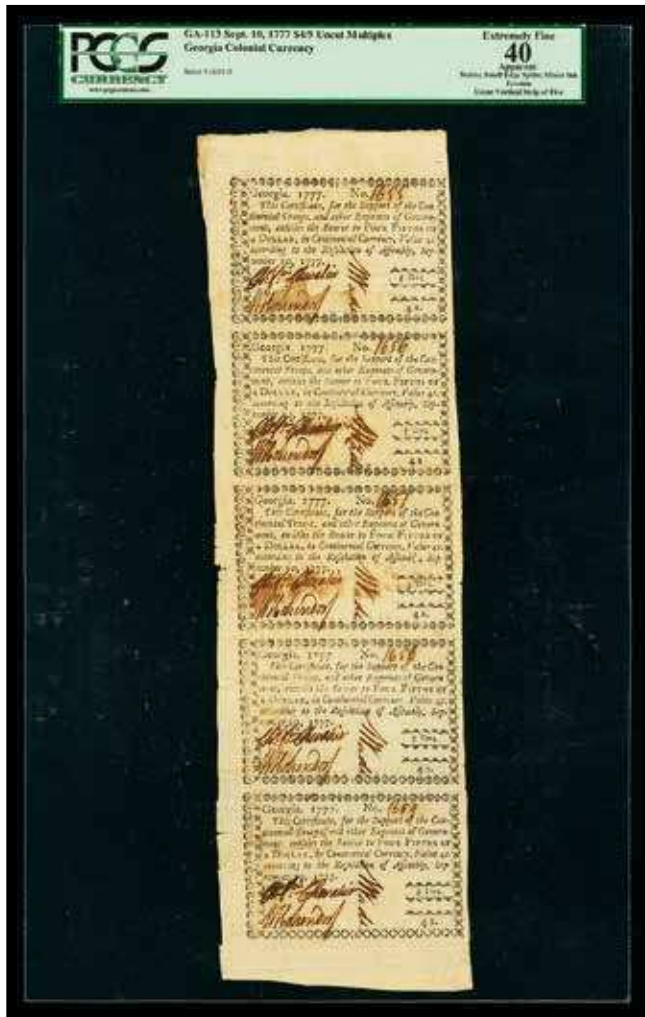 PCGS
CURRENCY
GA-113 Sept. 10, 1777 $4/5 Uncut Multiplex
Georgia Colonial Currency
Extremely Fine
40
Apparent
Uncut Vertical Strip of Five
Georgia. 1777. No. 1655
This Certificate, for the Support of the Con-
tinental Troops, and other Expences of Govern-
ment, entitles the Bearer to FOUR FIFTHS OF
a DOLLAR, in Continental Currency, Value 4s.
according to the Resolution of Assembly, Sep-
tember 10, 1777.
4 s.
Georgia. 1777 No. 1656
This Certificate, for the Support of the Con-
tinental Troops, and other Expences of Govern-
ment, entitles the Bearer to FOUR FIFTHS OF
a DOLLAR, in Continental Currency, Value 4s.
according to the Resolution of Assembly, Sep-
4 s.
Georgia. 1777. No. 1657
This Certificate, for the Support of the Con-
tinental Troops, and other Expences of Govern-
ment, entitles the Bearer to FOUR FIFTHS OF
a DOLLAR, in Continental Currency, Value 4s.
according to the Resolution of Assembly, Sep-
tember 10, 1777.
4 s.
Georgia. 1777 No. 1658
This Certificate, for the Support of the Con-
tinental Troops, and other Expences of Govern-
ment, entitles the Bearer to FOUR FIFTHS OF
a DOLLAR, in Continental Currency, Value 4s.
according to the Resolution of Assembly, Sep-
4 s.
Georgia. 1777. No. 1659
This Certificate, for the Support of the Con-
tinental Troops, and other Expences of Govern-
ment, entitles the Bearer to FOUR FIFTHS OF
a DOLLAR, in Continental Currency, Value 4s.
according to the Resolution of Assembly, Sep-
4 s.